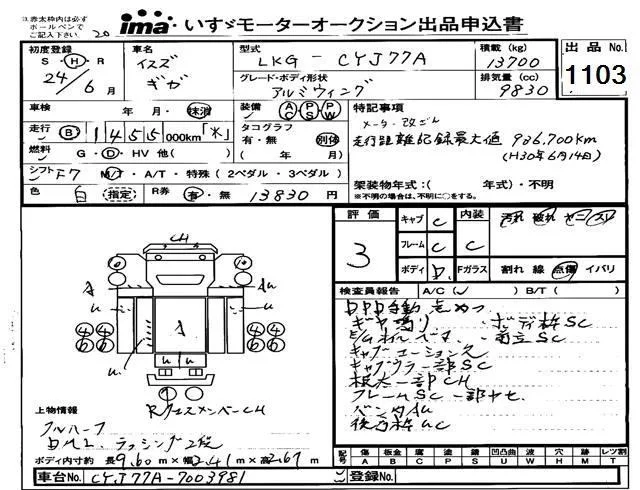 ※赤太枠内は必ず
ボールペンで
ご記入下さい
20
ima いすゞモーターオークション出品申込書
初度登録 S・H・R 24年6月
車名 イスズ ギガ
型式 LKG-CYJ77A
グレード・ボディ形状 アルミウィング
積載 (kg) 13700
排気量 (cc) 9830
出品 No. 1103
車検 年 月・抹消
装備 AC PS PW
走行 B 1455 000km「*」
タコグラフ 有・無 別体 ( 年 月)
燃料 G・D・HV 他( )
シフト F7 MT・A/T・特殊 (2ペダル・3ペダル)
色 白 指定 R券 有・無 13830 円
特記事項
メーター改ざん
走行距離記録最大値 986,700km
(H30年6月14日)
架装物年式:( 年式)・不明
※不明の場合は、不明に○をする。
評価 3
キャブ C
フレーム C
ボディ D
内装 C 汚れ 破れ ヤニ スリ
Fガラス 割れ 線 点傷 イバリ
検査員報告 A/C ( ) B/T ( )
DPD自動
ギヤ鳴り ボディ枠SC
キャブエーション
キャブウラ一部SC
根太一部CH
フレームSC一部
後方枠UC
CH
A
Au
u
A
u
u
u
u
4 4
6 6
4 4
6 6
Rクロスメンバー CH
上物情報
フルハーフ
ラッシング2段
ボディ内寸約 長9.60m×幅2.41m×高2.67m
記号 傷A 板金B 腐C 塗P 錆S 凹凸曲U 波W 穴H 跡M レツ割T
車台No. CYJ77A-7003981
登録No.